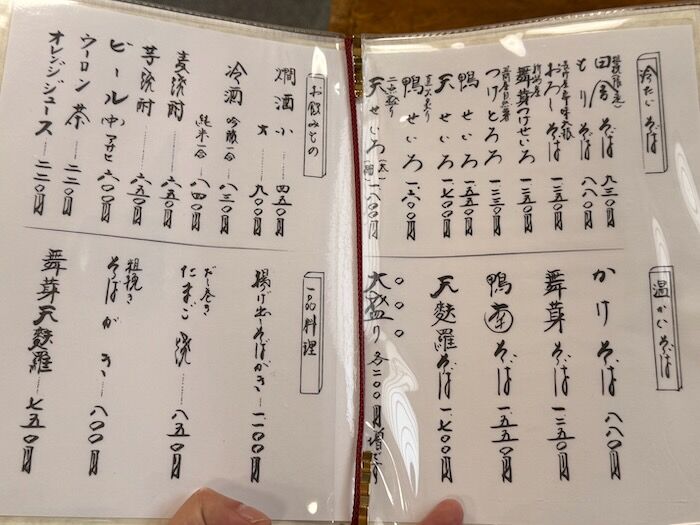 冷たいそば
田舎そば 九三〇円
もりそば 八八〇円
おろしそば 一三五〇円
舞茸つけせいろ 一三五〇円
つけとろろ 一三三〇円
鴨せいろ 一五五〇円
天せいろ 一七〇〇円
鴨せいろ 一六〇〇円
二色盛り
天せいろ 一八〇〇円
温かいそば
かけそば 八八〇円
舞茸そば 一三五〇円
鴨南そば 一五五〇円
天麩羅そば 一七〇〇円
大盛り各二〇〇円増です
お飲みもの
燗酒 小 四五〇円
大 九〇〇円
冷酒 吟醸一合 八三〇円
純米一合 八四〇円
麦焼酎 六五〇円
芋焼酎 六五〇円
ビール(中)アサヒ 六〇〇円
ウーロン茶 二二〇円
オレンジジュース 二二〇円
一品料理
揚げ出しそばがき 一一〇〇円
だし巻き
たまご焼 八五〇円
粗挽き
そばがき 八〇〇円
舞茸天麩羅 七五〇円